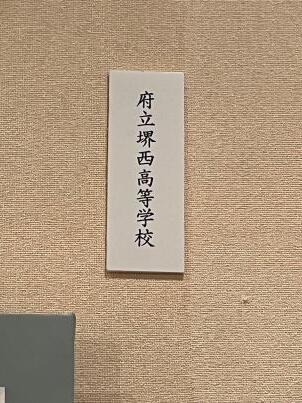 府立堺西高等学校